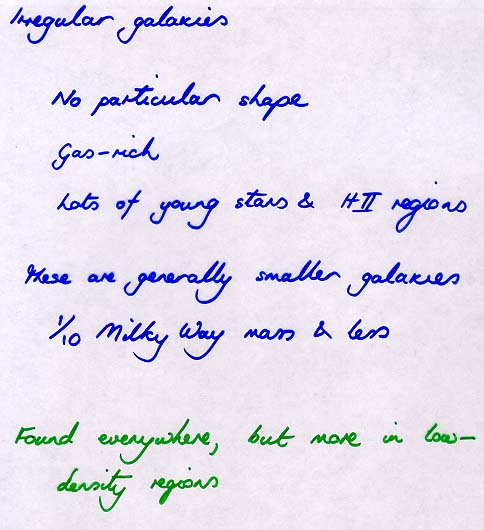 Irregular galaxies
No particular shape
Gas-rich
Lots of young stars & HII regions
These are generally smaller galaxies
1/10 Milky Way mass & less
Found everywhere, but more in low-
density regions